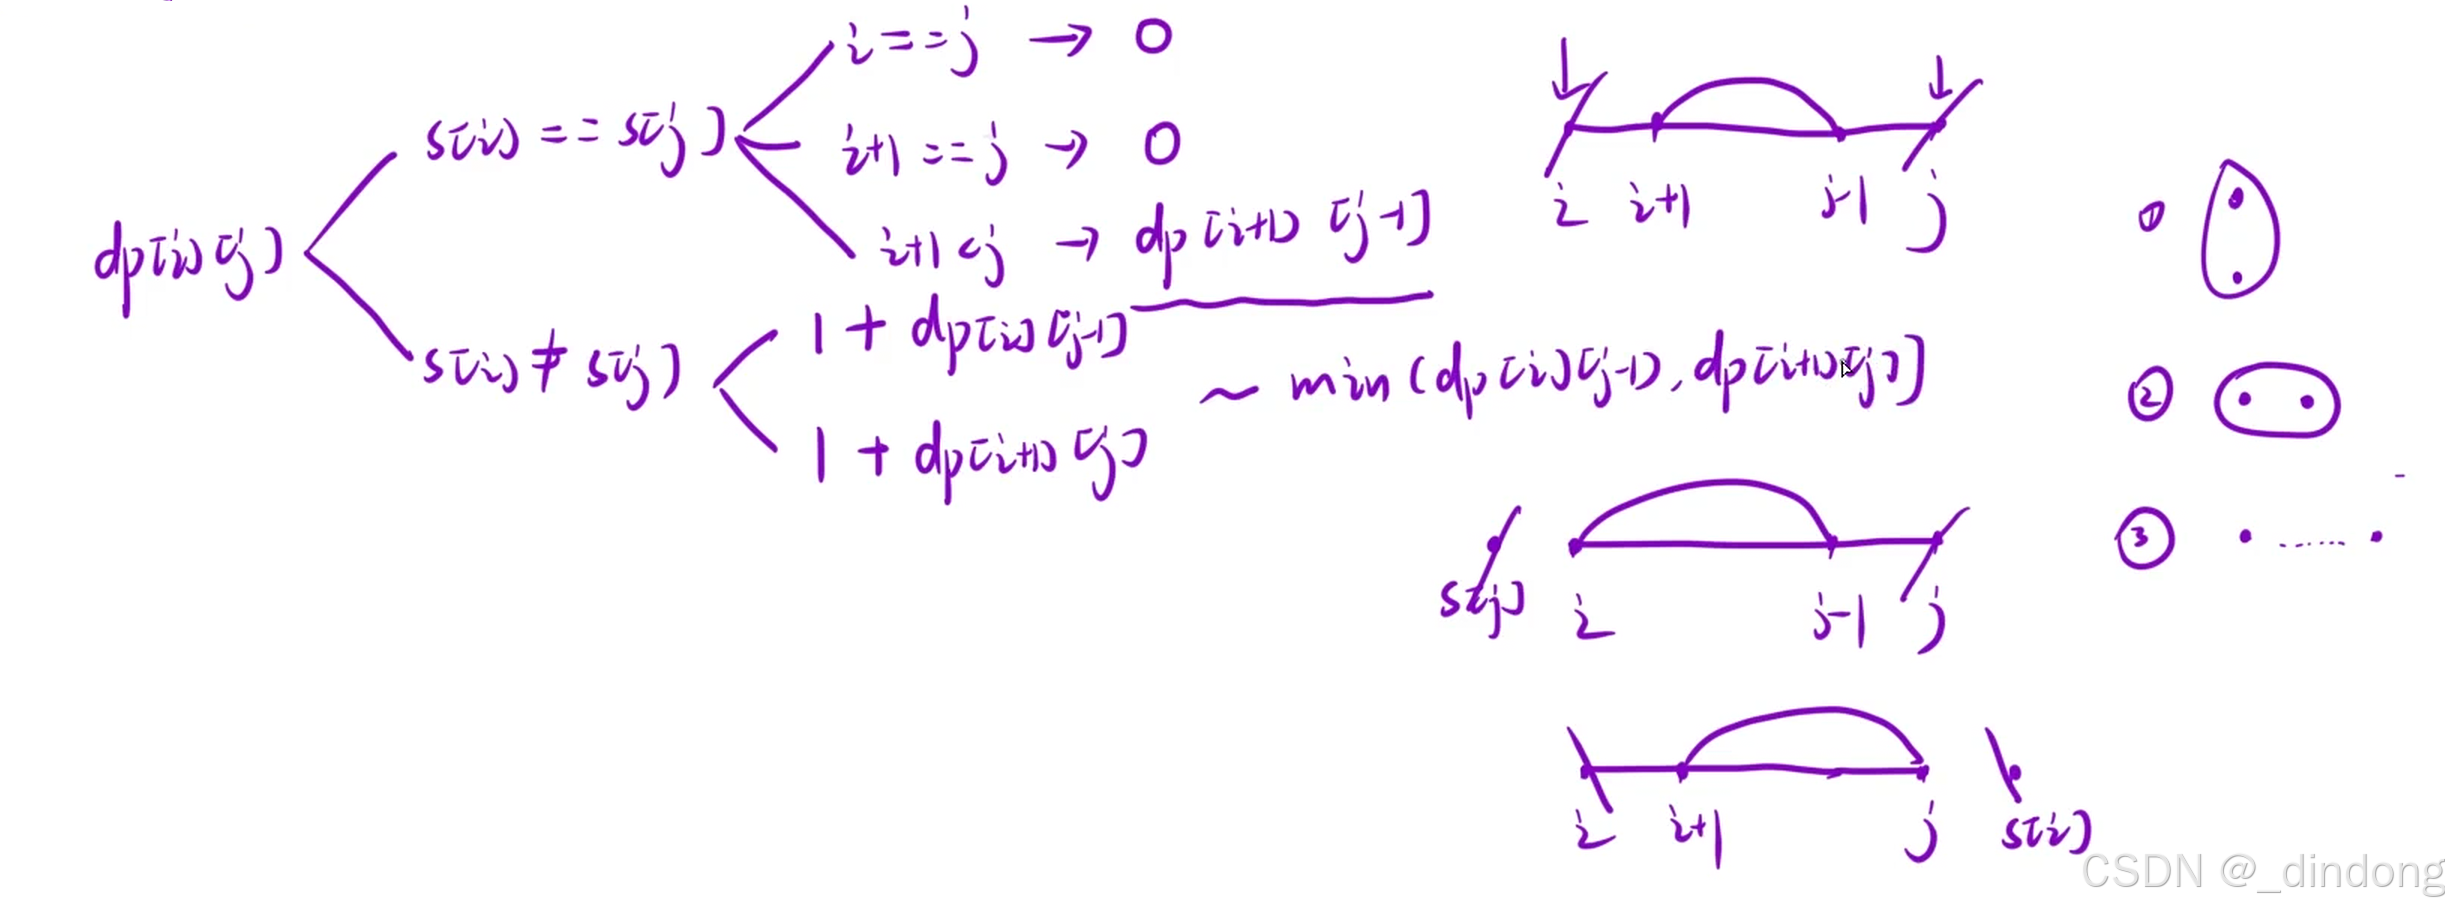 i==j → 0
s[i] == s[j]
i+1 == j → 0
i+1 < j → dp[i+1][j-1]
dp[i][j]
1 + dp[i][j-1]
s[i] ≠ s[j]
~ min(dp[i][j-1], dp[i+1][j])
1 + dp[i+1][j]
i i+1 j-1 j
①
②
③
s[j] i j-1 j
i i+1 j s[i]
CSDN @_dindong